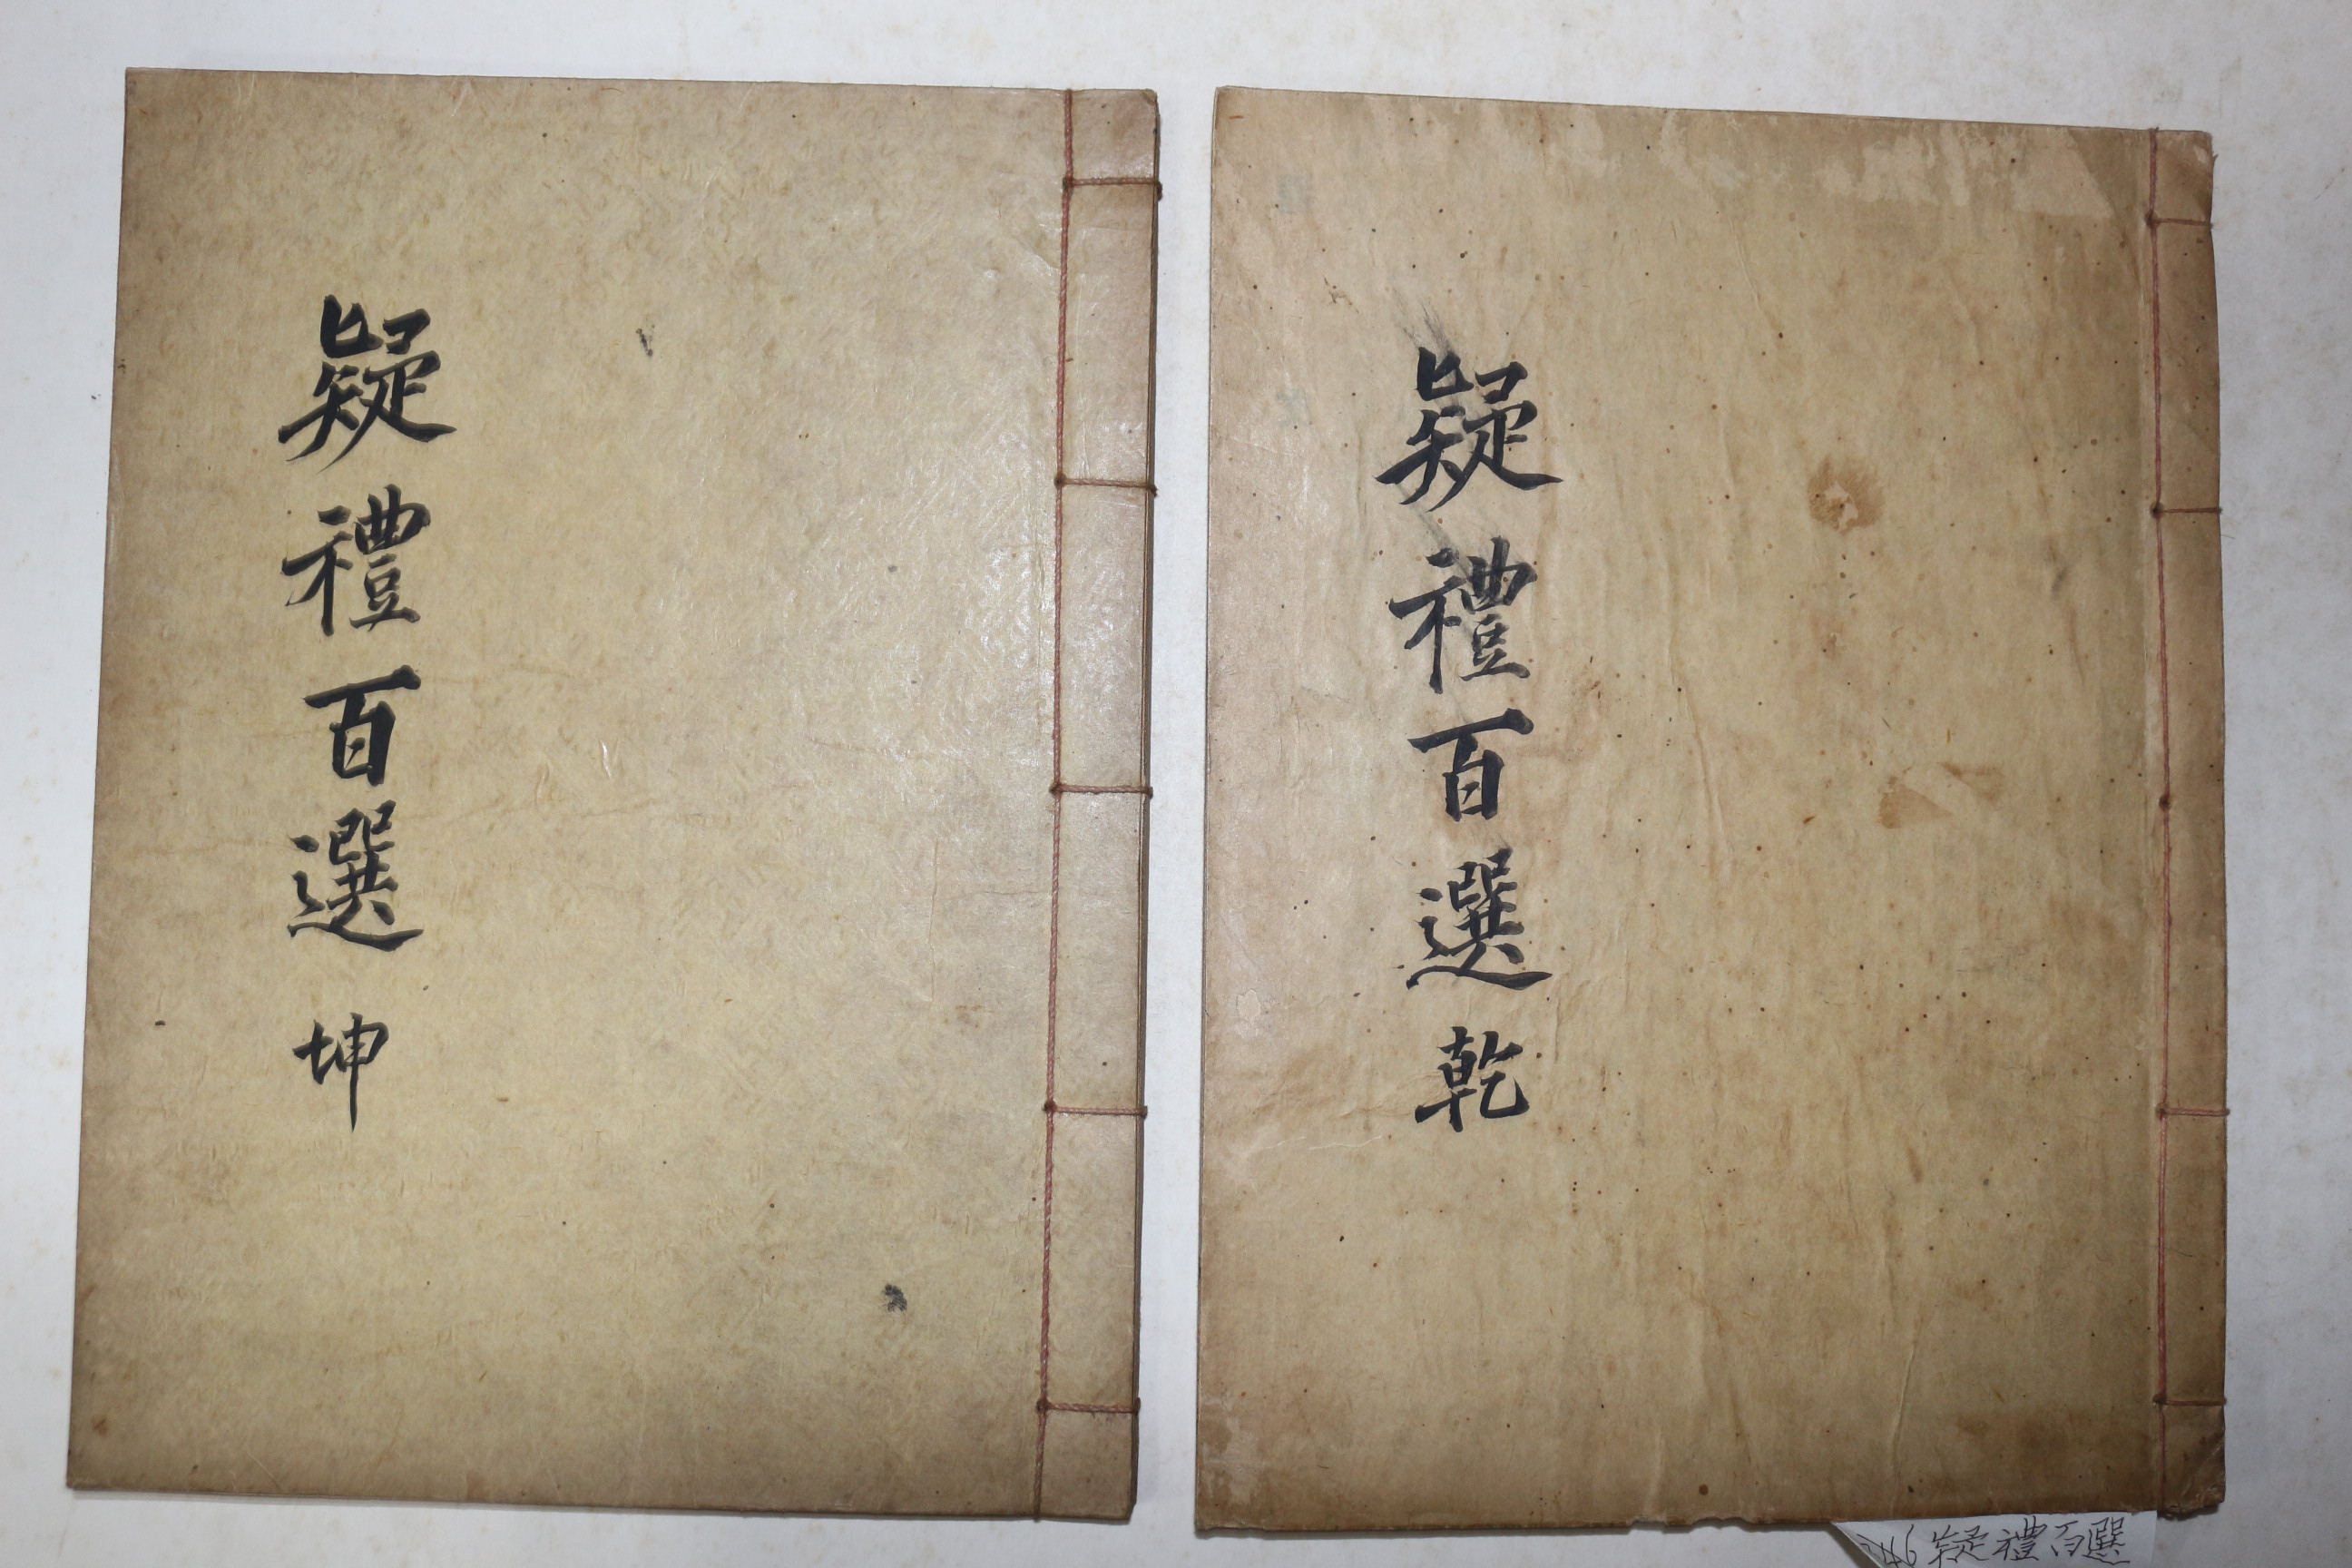 疑禮百選 乾
疑禮百選 坤
46疑禮百選